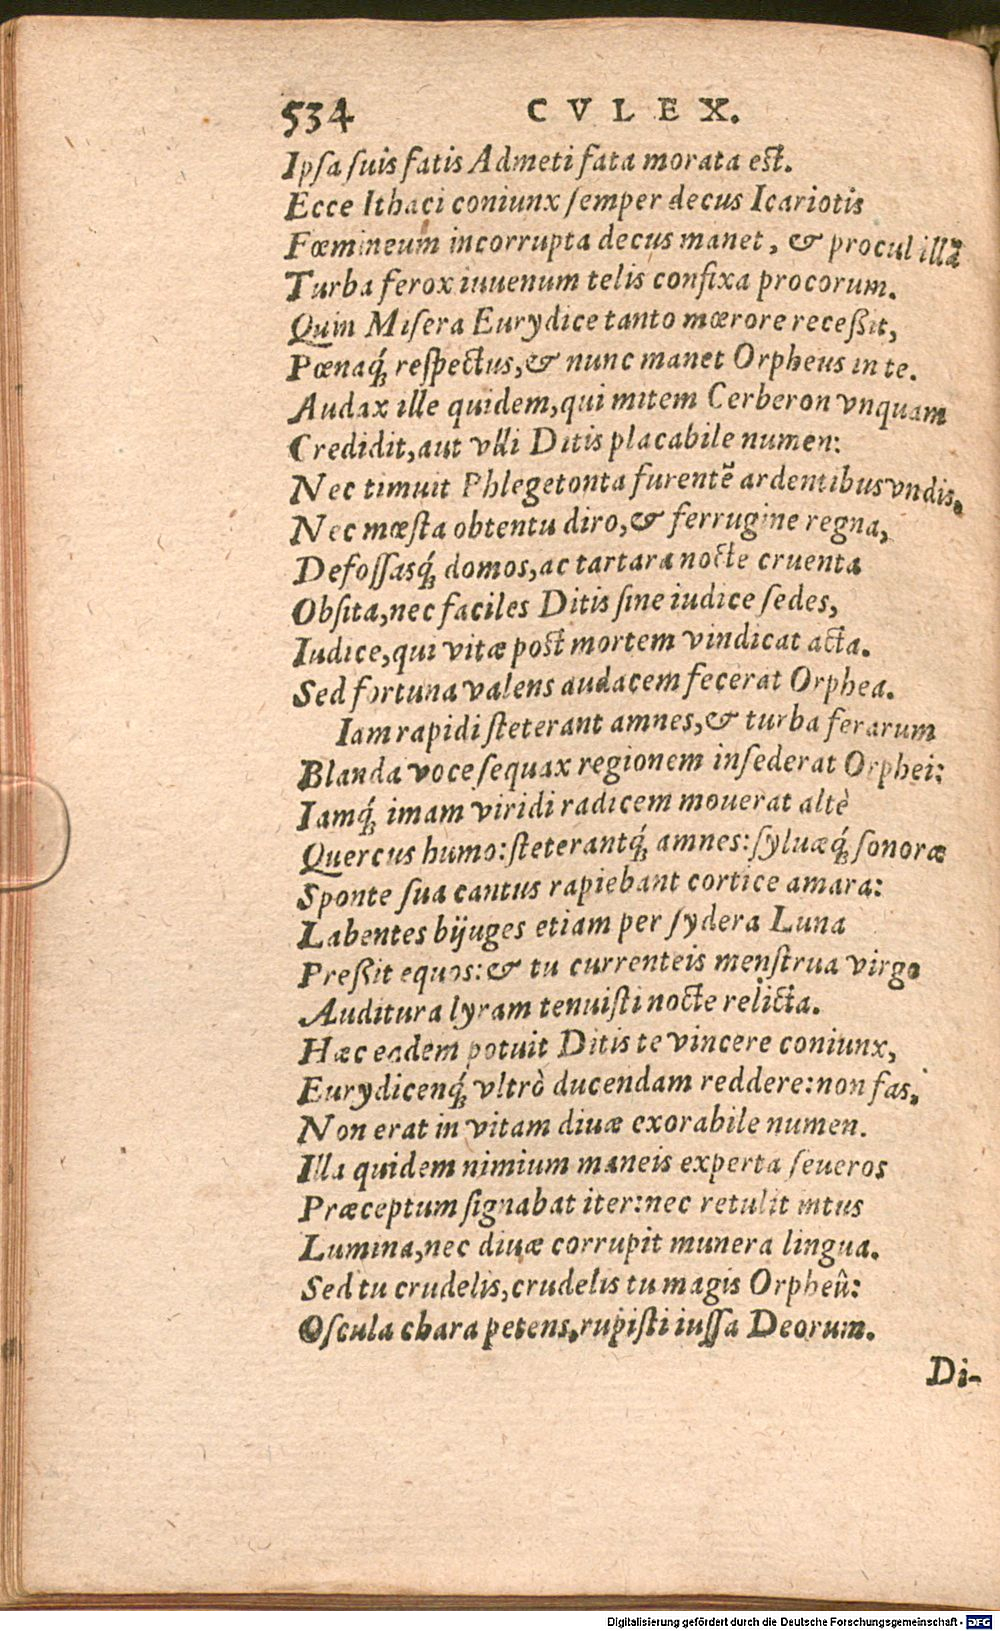 534 CVLEX.
Ipſa ſuis fatis Admeti fata morata eſt.
Ecce Ithaci coniunx ſemper decus Icariotis
Fœmineum incorrupta decus manet, & procul illã
Turba ferox iuuenum telis confixa procorum.
Quin Miſera Eurydice tanto mœrore receßit,
Pœnaq́; reſpectus, & nunc manet Orpheus in te.
Audax ille quidem, qui mitem Cerberon vnquam
Credidit, aut vlli Ditis placabile numen:
Nec timuit Phlegetonta furentẽ ardentibus vndis.
Nec mœſta obtentu diro, & ferrugine regna,
Defoſſasq́; domos, ac tartara nocte cruenta
Obſita, nec faciles Ditis ſine iudice ſedes,
Iudice, qui vitæ poſt mortem vindicat acta.
Sed fortuna valens audacem fecerat Orphea.
Iam rapidi ſteterant amnes, & turba ferarum
Blanda voce ſequax regionem inſederat Orphei:
Iamq́; imam viridi radicem mouerat altè
Quercus humo: ſteterantq́; amnes: ſyluæq́; ſonoræ
Sponte ſua cantus rapiebant cortice amara:
Labentes bijuges etiam per ſydera Luna
Preßit equos: & tu currenteis menſtrua virgo
Auditura lyram tenuiſti nocte relicta.
Hæc eadem potuit Ditis te vincere coniunx,
Eurydicenq́; vltrò ducendam reddere: non fas,
Non erat in vitam diuæ exorabile numen.
Illa quidem nimium maneis experta ſeueros
Præceptum ſignabat iter: nec retulit intus
Lumina, nec diuæ corrupit munera lingua.
Sed tu crudelis, crudelis tu magis Orpheû:
Oſcula chara petens, rupiſti iuſſa Deorum.
Di-
Digitalisierung gefördert durch die Deutsche Forschungsgemeinschaft - DFG